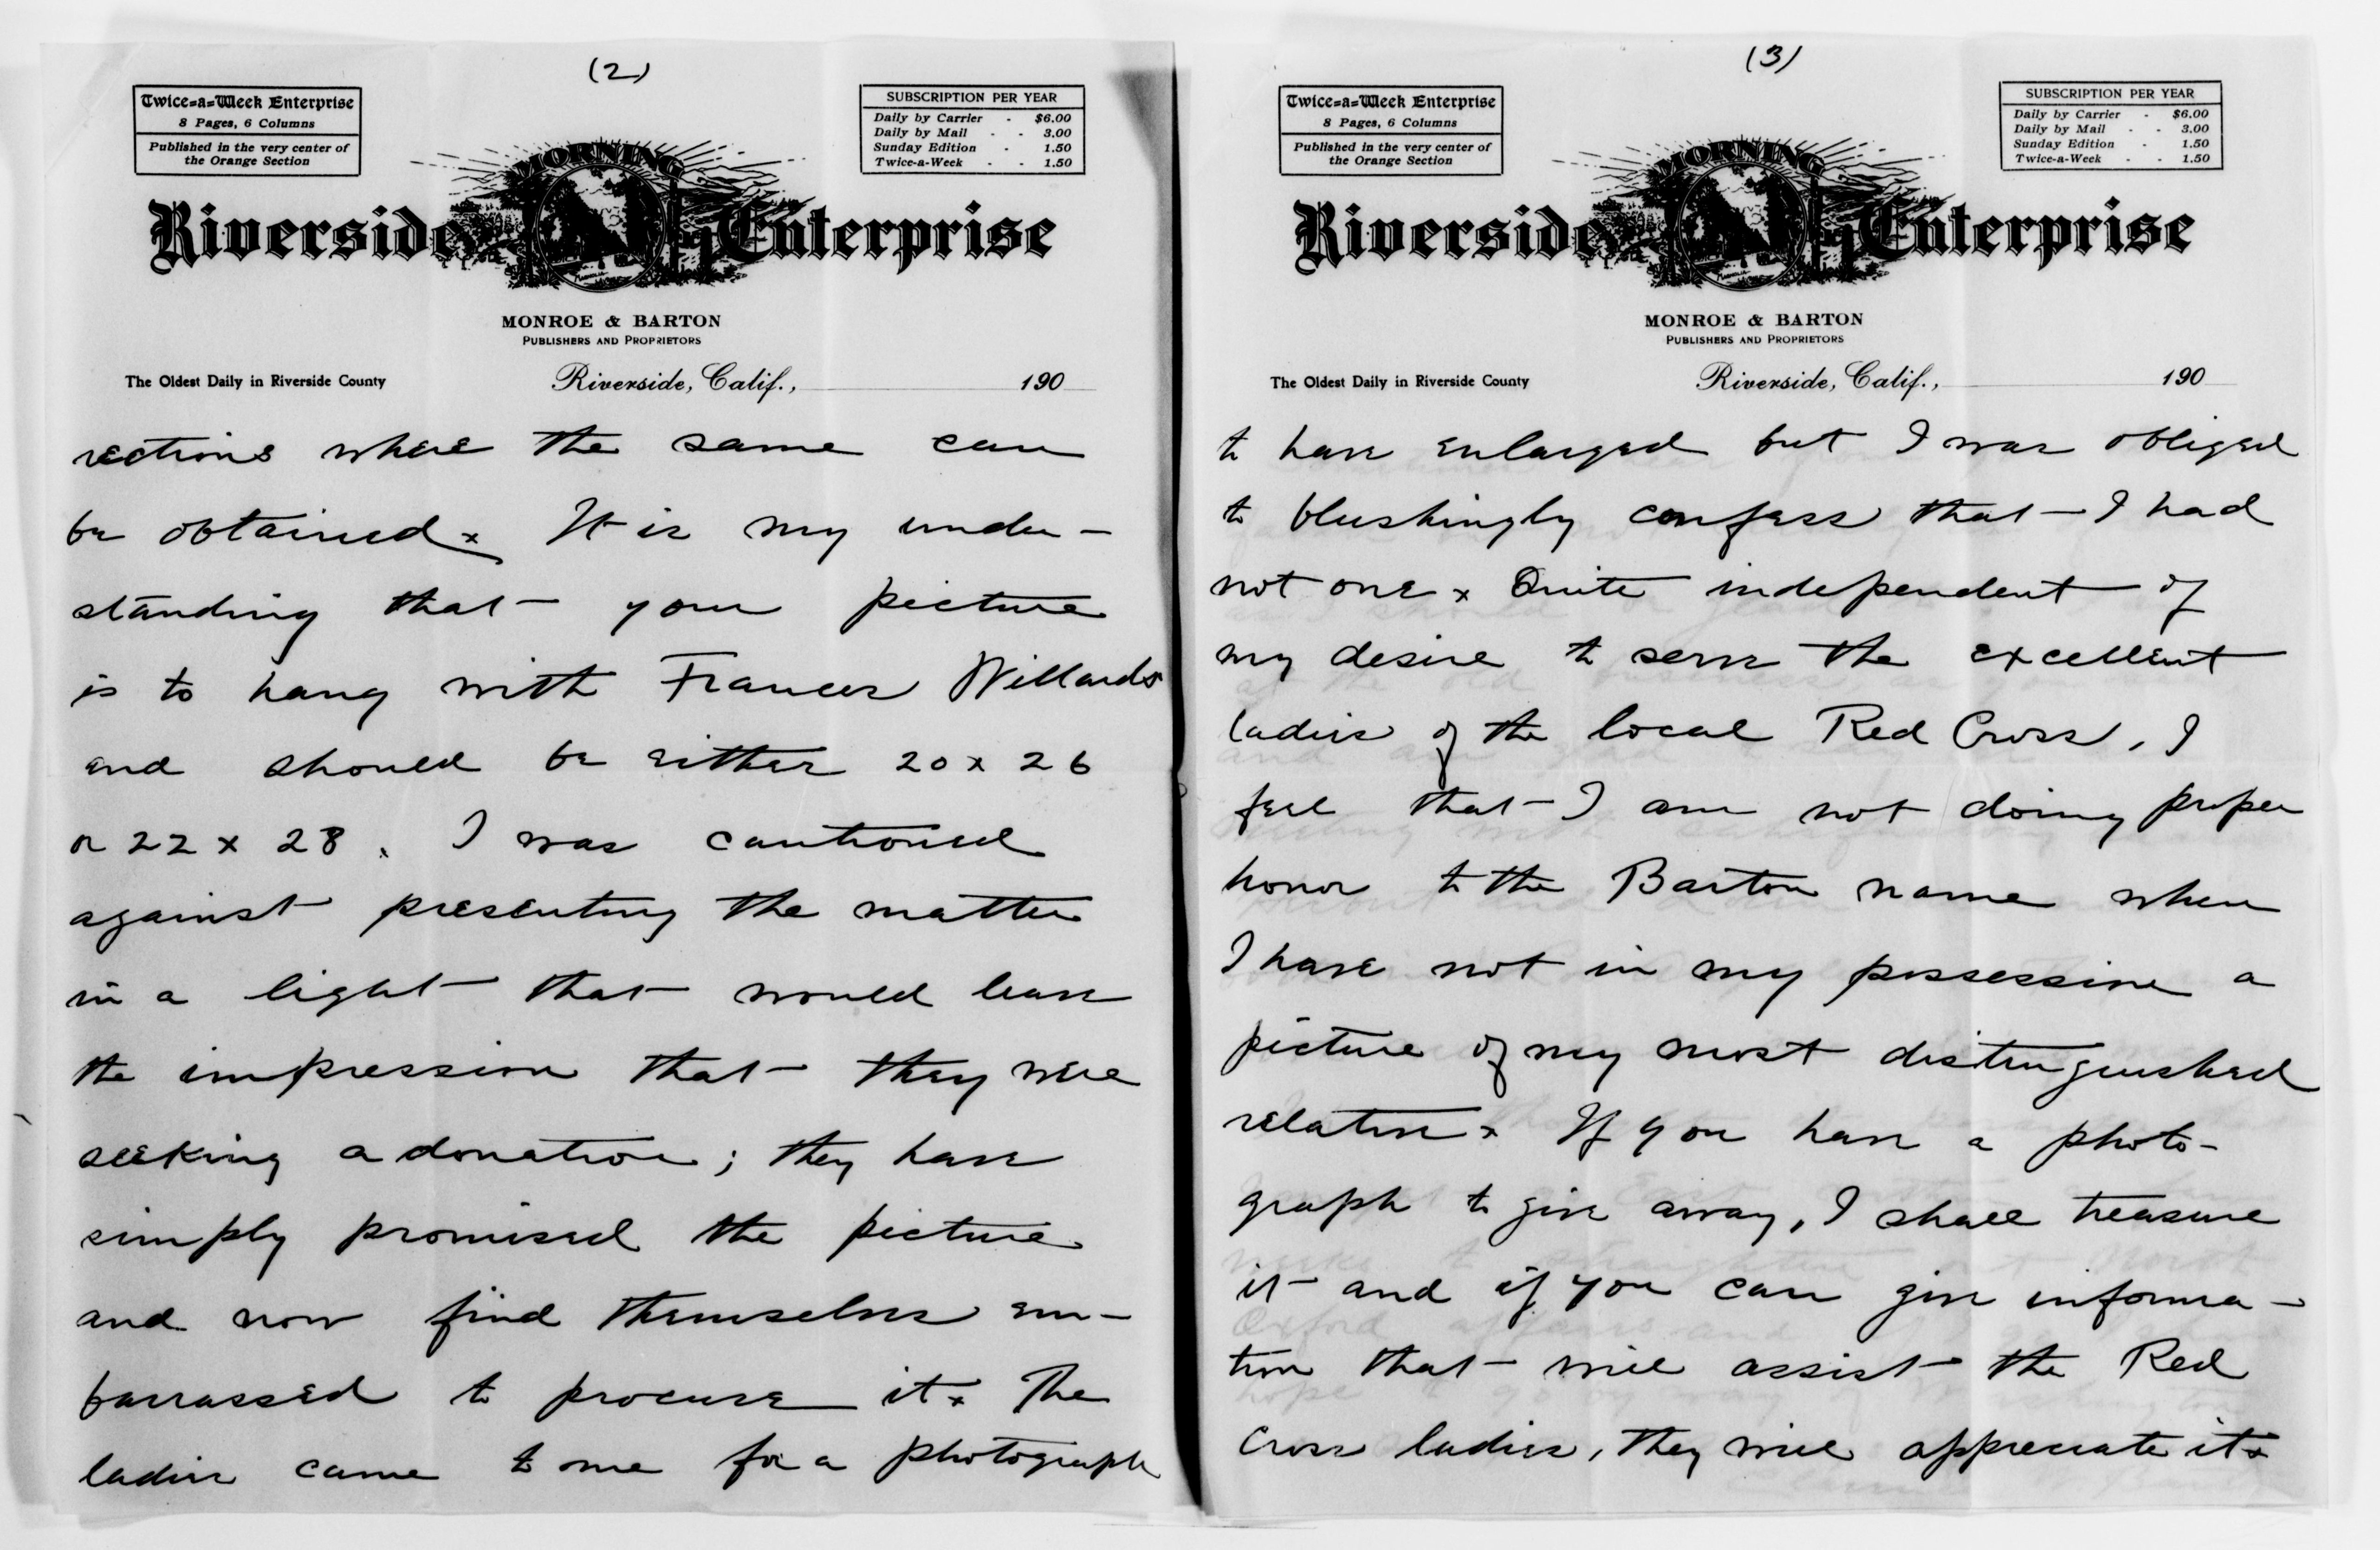 (2)
Twice=a=Week Enterprise
8 Pages, 6 Columns
Published in the very center of
the Orange Section
SUBSCRIPTION PER YEAR
Daily by Carrier - $6.00
Daily by Mail - - 3.00
Sunday Edition - 1.50
Twice-a-Week - - 1.50
MORNING
Riverside Enterprise
MONROE & BARTON
PUBLISHERS AND PROPRIETORS
The Oldest Daily in Riverside County
Riverside, Calif., 190
rections where the same can
be obtained x It is my under-
standing that your picture
is to hang with Frances Willards
and should be either 20 x 26
or 22 x 28. I was cautioned
against presenting the matter
in a light that would leave
the impression that they were
seeking a donation; they have
simply promised the picture
and now find themselves em-
barrassed to procure it x The
ladies came to me for a photograph
(3)
Twice=a=Week Enterprise
8 Pages, 6 Columns
Published in the very center of
the Orange Section
SUBSCRIPTION PER YEAR
Daily by Carrier - $6.00
Daily by Mail - - 3.00
Sunday Edition - 1.50
Twice-a-Week - - 1.50
MORNING
Riverside Enterprise
MONROE & BARTON
PUBLISHERS AND PROPRIETORS
The Oldest Daily in Riverside County
Riverside, Calif., 190
to have enlarged but I was obliged
to blushingly confess that I had
not one x Quite independent of
my desire to serve the excellent
ladies of the local Red Cross, I
feel that I am not doing proper
honor to the Barton name when
I have not in my possession a
picture of my most distinguished
relative x If you have a photo-
graph to give away, I shall treasure
it and if you can give informa-
tion that will assist the Red
Cross ladies, they will appreciate it x